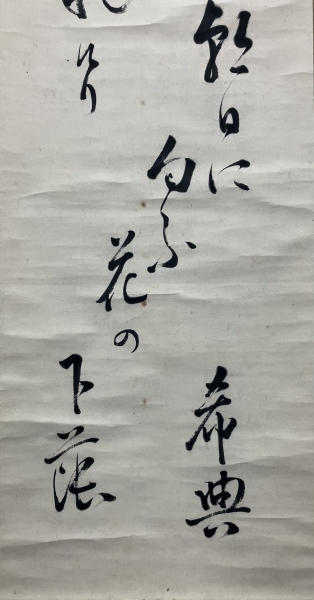 朝日に
匂ふ
花の
下蔭
希典